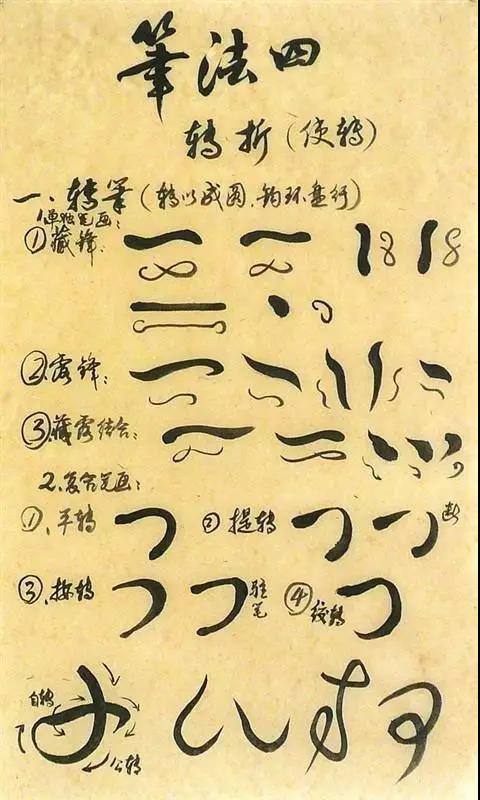 筆法四
转折(使转)
一、转筆(转以成圆,钩环盘行)
1.单独笔画:
①藏锋:
②露锋:
③藏露结合:
2.复合笔画:
①、平转 ②提转 断
③、按转 驻笔 ④绞转
自转
公转